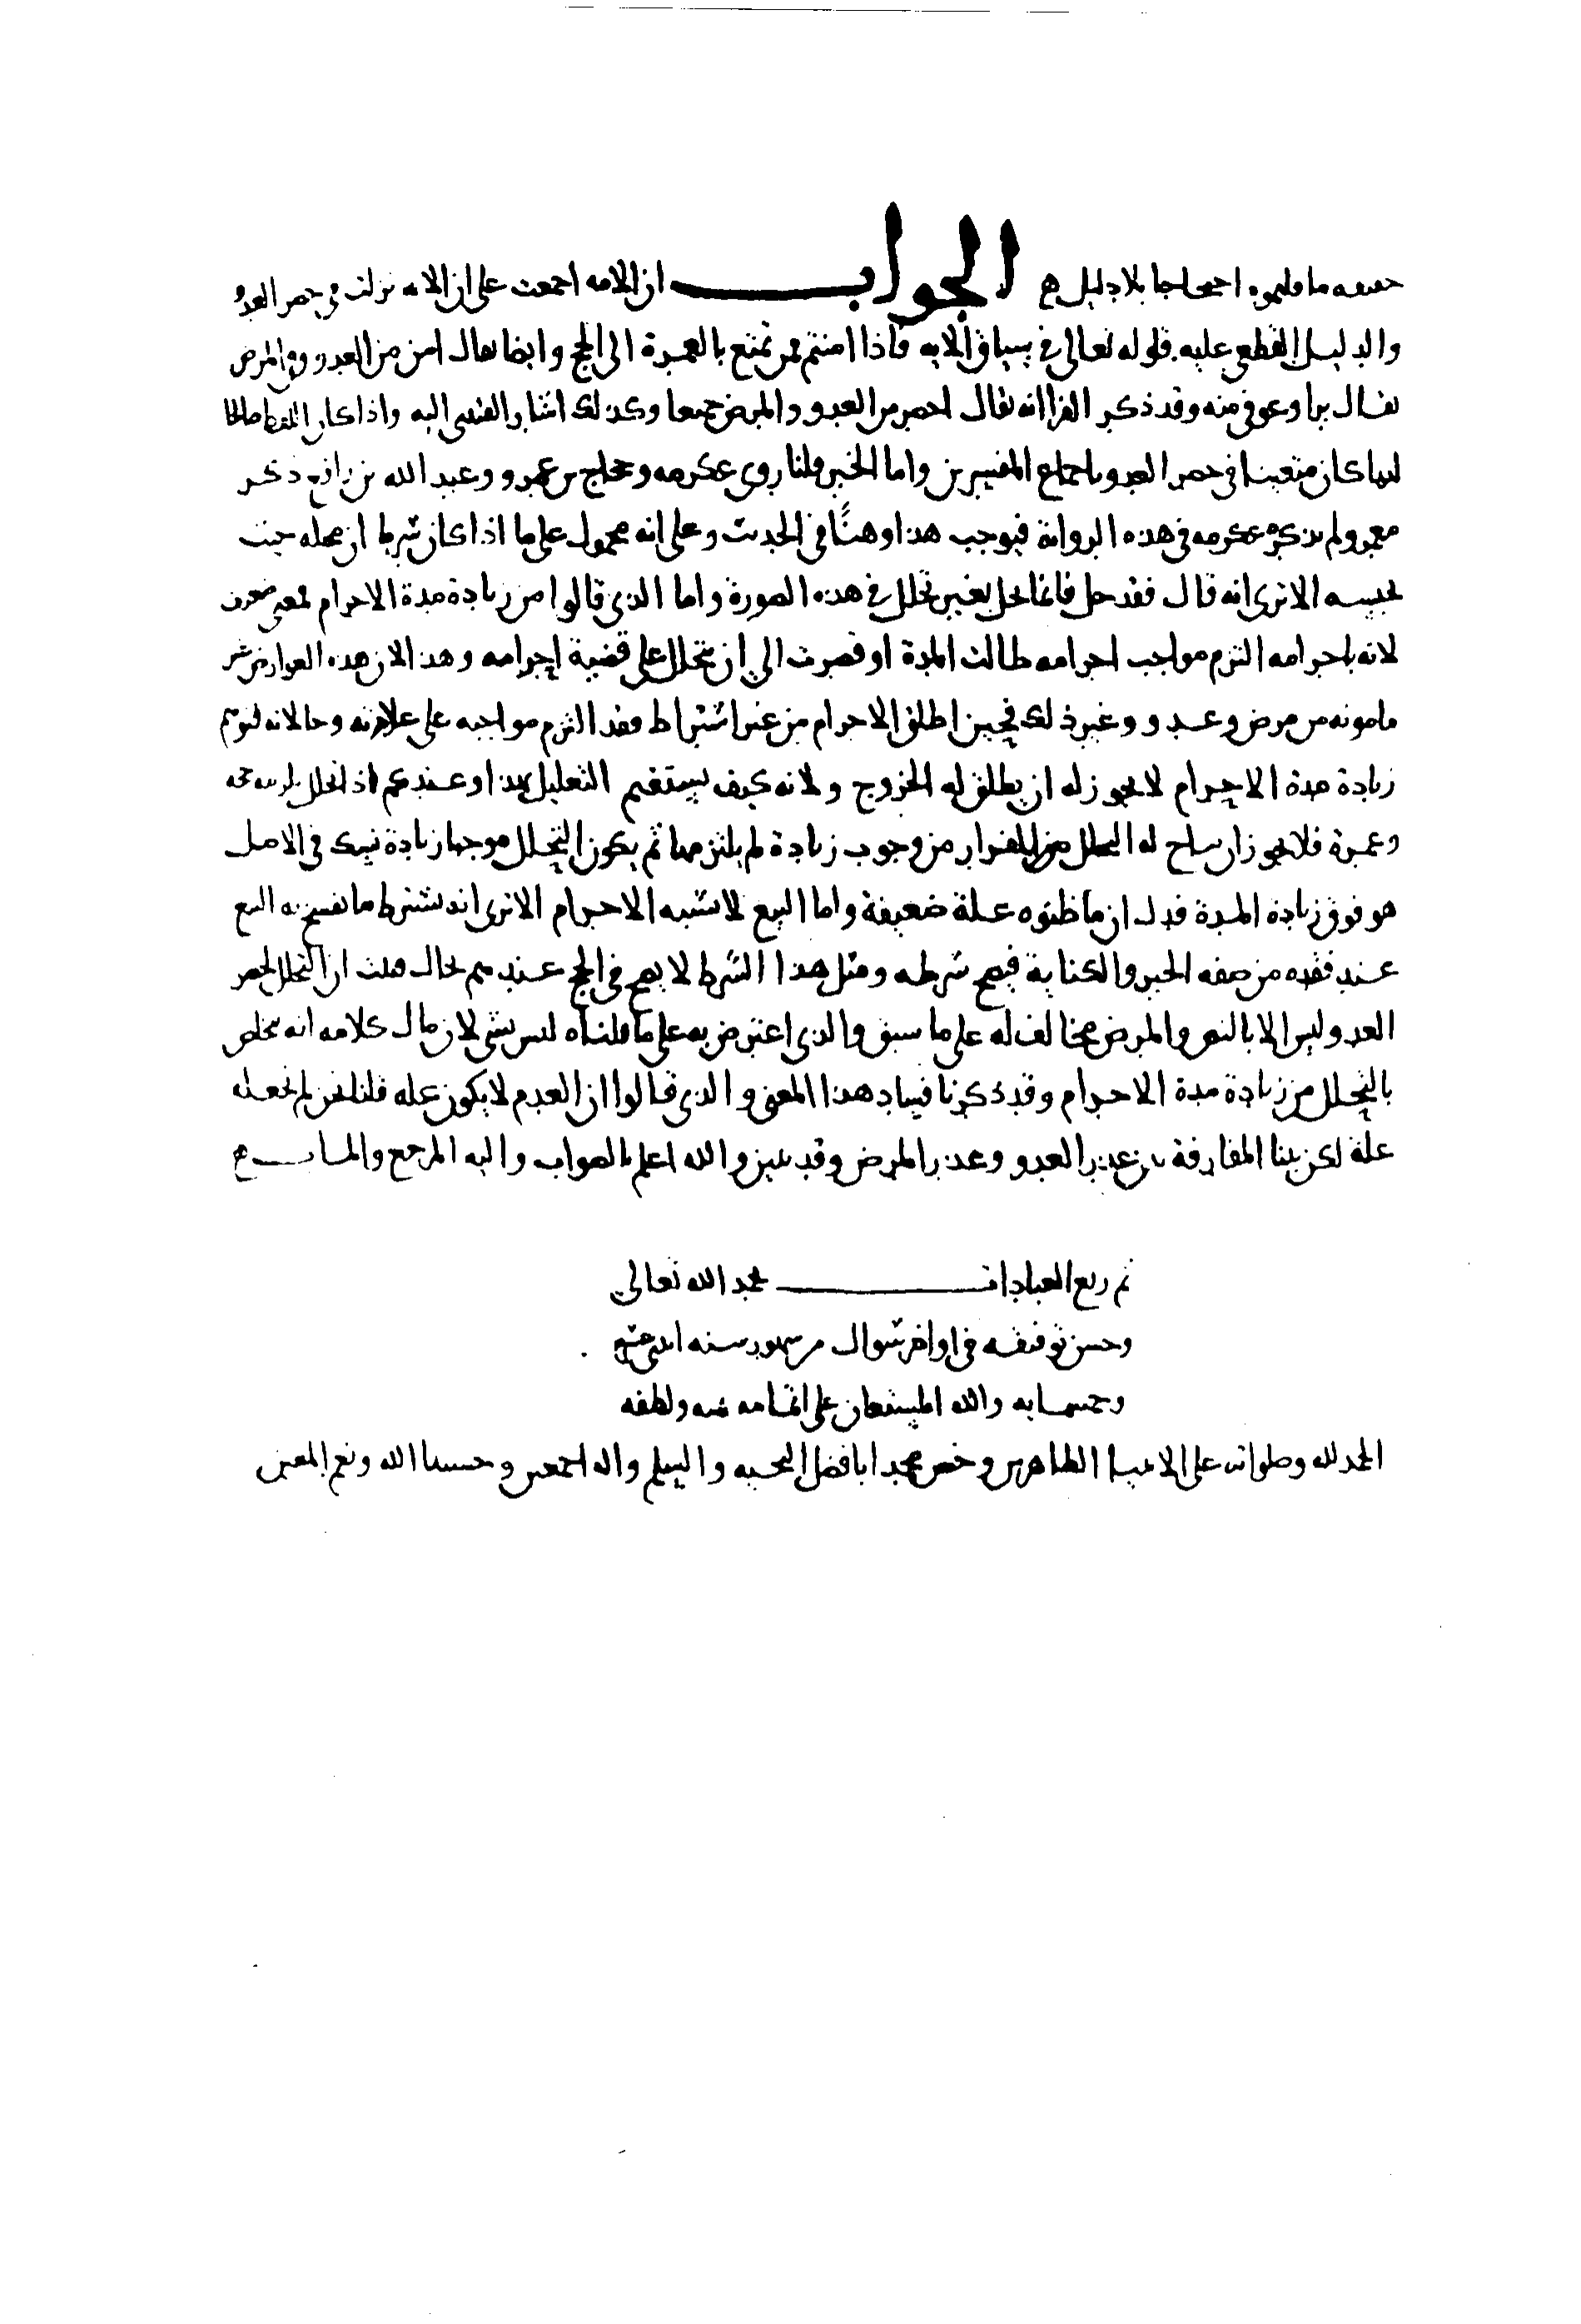 حقيقه ما قلتموه احتجاجا بلا دليل ه الجواب ان الامه اجمعت على ان الايه نزلت في حصر العدو
والدليل القطعي عليه قوله تعالى في سياق الايه فاذا امنتم فمن تمتع بالعمرة الى الحج وايضا يقال امن من العدو وفي المرض
يقال برا وعوفي منه وقد ذكر الفرا انه يقال احصر من العدو والمرض جميعا وكذلك اشار القتبي اليه واذا كان اللفظ صالحا
لهما كان متعينا في حصر العدو باجماع المفسرين واما الخبر قلنا روى عكرمه وحجاج بن عمرو وعبد الله بن رافع ذكر
معمر ولم يذكره عكرمه في هذه الرواية فيوجب هذا وهنًا في الحديث وعلى انه محمول على ما اذا كان شرط ان محله حيث
يحبسه الا ترى انه قال فقد حل فانما يحل بغير تحلل في هذه الصورة واما الذي قالوا من زيادة مدة الاحرام فمعنى ضعيف
لانه باحرامه التزم مواجب احرامه طالت المدة او قصرت الى ان يتحلل على قضية احرامه وهذا لان هذه العوارض غير
مامونه من مرض وعدو وغير ذلك فحين اطلق الاحرام من غير اشتراط فقد التزم مواجبه على علاته وحالاته لتوهم
زيادة مدة الاحرام لا يجوز له ان يطلق له الخروج ولانه كيف يستقيم التعليل بهذا وعندهم اذا تحلل يلزمه حجه
وعمرة فلا يجوز ان يباح له التحلل للفرار من وجوب زيادة لم يلتزمها ثم يكون التحلل موجبا زيادة نسك في الاصل
هو فوق زيادة المدة فدل ان ما ظنوه علة ضعيفة واما البيع لا يشبه الاحرام الا ترى انه يشترط ما يفسخ به البيع
عند فقده من صفه الخبر والكتابة فيصح شرطه ومثل هذا الشرط لا يصح في الحج عندهم بحال فثبت ان التحلل لحصر
العدو ليس الا بالنص والمرض مخالف له على ما سبق والذي اعترض به على ما قلناه ليس بشي لان مال كلامه انه يتخلص
بالتحلل من زيادة مدة الاحرام وقد ذكرنا فساد هذا المعنى والذي قالوا ان العدم لا يكون عله قلنا نحن لم نجعله
علة لكن بينا المفارقة بين عذر العدو وعذر المرض وقد تبين والله اعلم بالصواب واليه المرجع والماب ه
تم ربع العبادات بحمد الله تعالى
وحسن توفيقه في اواخر شوال من شهور سنه اثنى عشر
وخمسمايه والله المستعان على اتمامه بمنه ولطفه
الحمد لله وصلواته على الانبيا الطاهرين وخص محمدا بافضل التحيه والتسليم واله اجمعين وحسبنا الله ونعم المعين